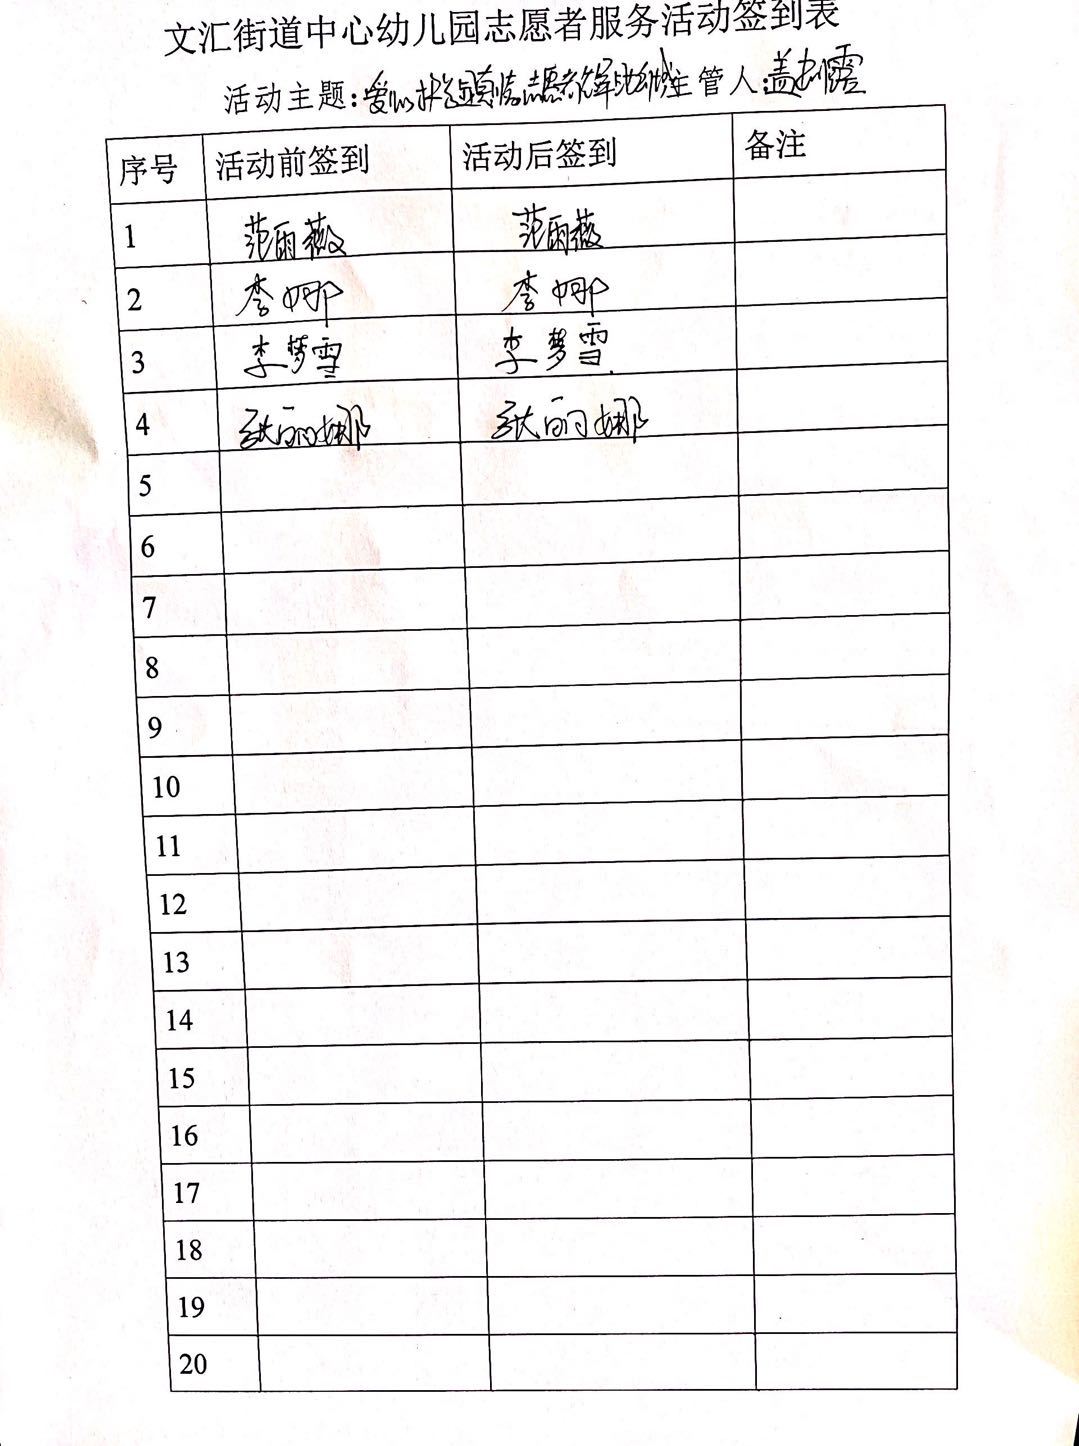 文汇街道中心幼儿园志愿者服务活动签到表
活动主题:爱心 志愿者 主管人:盖 霞
序号 活动前签到 活动后签到 备注
1 范雨薇 范雨薇
2 李娜 李娜
3 李梦雪 李梦雪
4 张丽娜 张丽娜
5
6
7
8
9
10
11
12
13
14
15
16
17
18
19
20